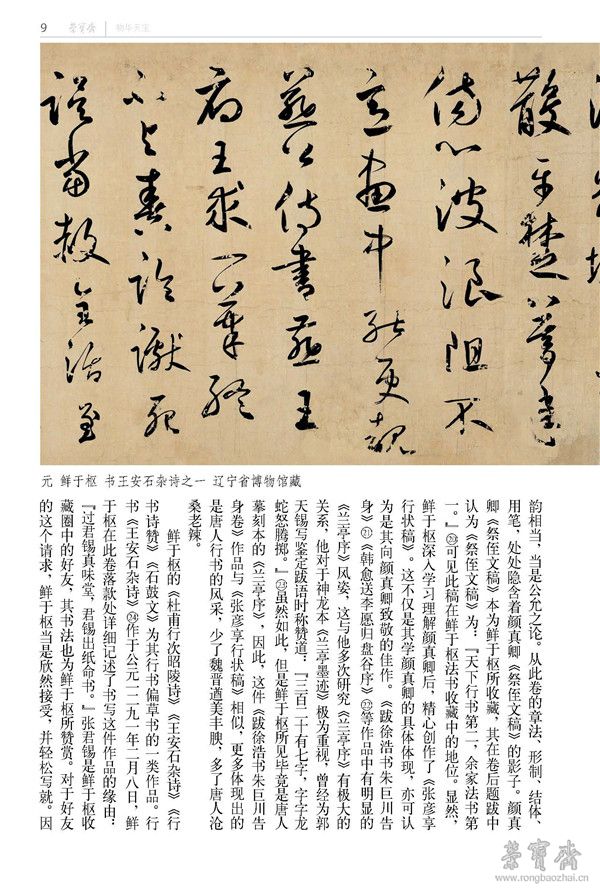 9 荣宝斋 物华天宝
散平楚暮年
傷心波浪阻不
意畫中能更覩
燕公侍書燕王
府王求一筆終
不與奏論讞死
誤當赦全活至
元 鲜于枢 书王安石杂诗之一 辽宁省博物馆藏
韵相当，当是公允之论。从此卷的章法、形制、结体、
用笔，处处隐含着颜真卿《祭侄文稿》的影子。颜真
卿《祭侄文稿》本为鲜于枢所收藏，其在卷后题跋中
认为《祭侄文稿》为：『天下行书第二，余家法书第
一。』⑳可见此稿在鲜于枢法书收藏中的地位。显然，
鲜于枢深入学习理解颜真卿后，精心创作了《张彦享
行状稿》。这不仅是其学颜真卿的具体体现，亦可认
为是其向颜真卿致敬的佳作。《跋徐浩书朱巨川告
身》㉑《韩愈送李愿归盘谷序》㉒等作品中有明显的
《兰亭序》风姿，这与他多次研究《兰亭序》有极大的
关系，他对于神龙本《兰亭墨迹》极为重视，曾经为郭
天锡写鉴定跋语时称赞道：『三百二十有七字，字字龙
蛇怒腾掷。』㉓虽然如此，但是鲜于枢所见毕竟是唐人
摹刻本的《兰亭序》，因此，这件《跋徐浩书朱巨川告
身卷》作品与《张彦享行状稿》相似，更多体现出的
是唐人行书的风采，少了魏晋遒美丰腴，多了唐人沧
桑老辣。
鲜于枢的《杜甫行次昭陵诗》《王安石杂诗》《行
书诗赞》《石鼓文》为其行书偏草书的一类作品。行
书《王安石杂诗》㉔作于公元一二九一年二月八日，鲜
于枢在此卷落款处详细记述了书写这件作品的缘由：
『过君锡真味堂，君锡出纸命书。』张君锡是鲜于枢收
藏圈中的好友，其书法也为鲜于枢所赞赏。对于好友
的这个请求，鲜于枢当是欣然接受，并轻松写就。因
荣宝斋
www.rongbaozhai.cn